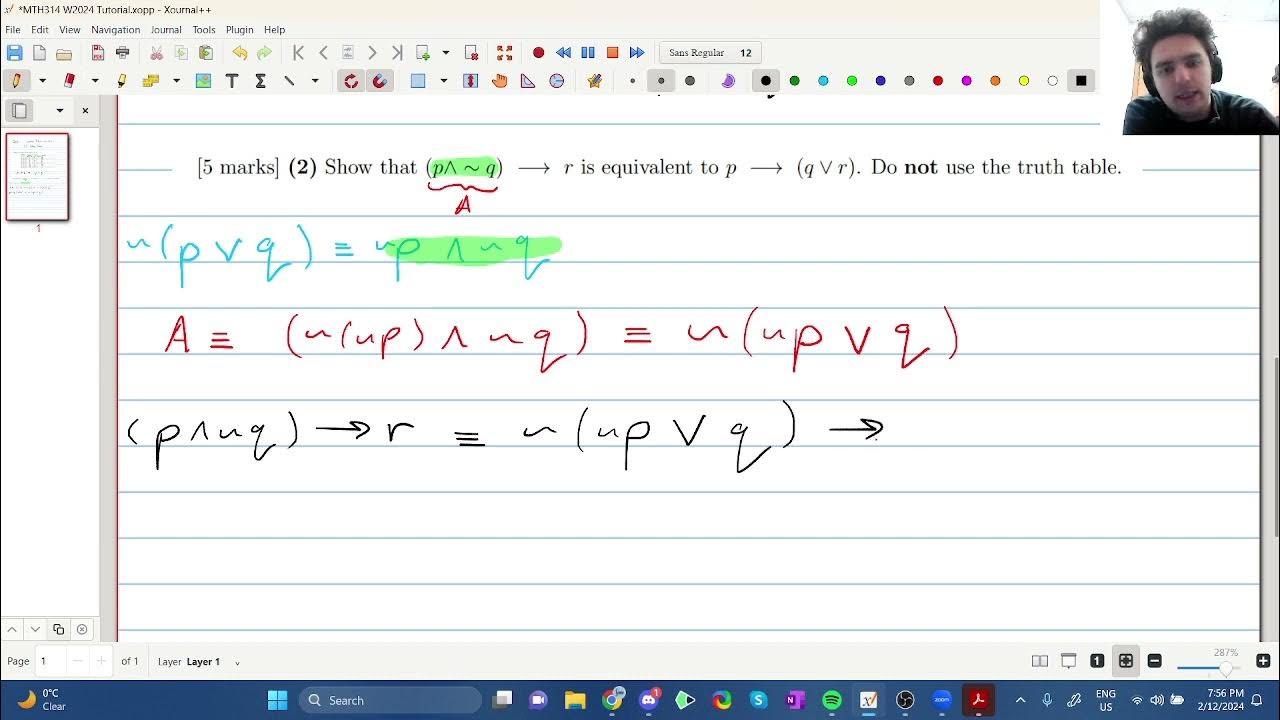 *MTH314 W2024 Tutorial.xopp - Xournal++
File Edit View Navigation Journal Tools Plugin Help
Sans Regular 12
[5 marks] (2) Show that (p∧ ∼ q) ⟶ r is equivalent to p ⟶ (q ∨ r). Do not use the truth table.
A
~(p ∨ q) ≡ ~p ∧ ~q
A ≡ (~(~p) ∧ ~q) ≡ ~(~p ∨ q)
(p ∧ ~q) → r ≡ ~(~p ∨ q) →
1
Page 1 of 1 Layer Layer 1
287%
0°C
Clear
Search
ENG
US
7:56 PM
2/12/2024